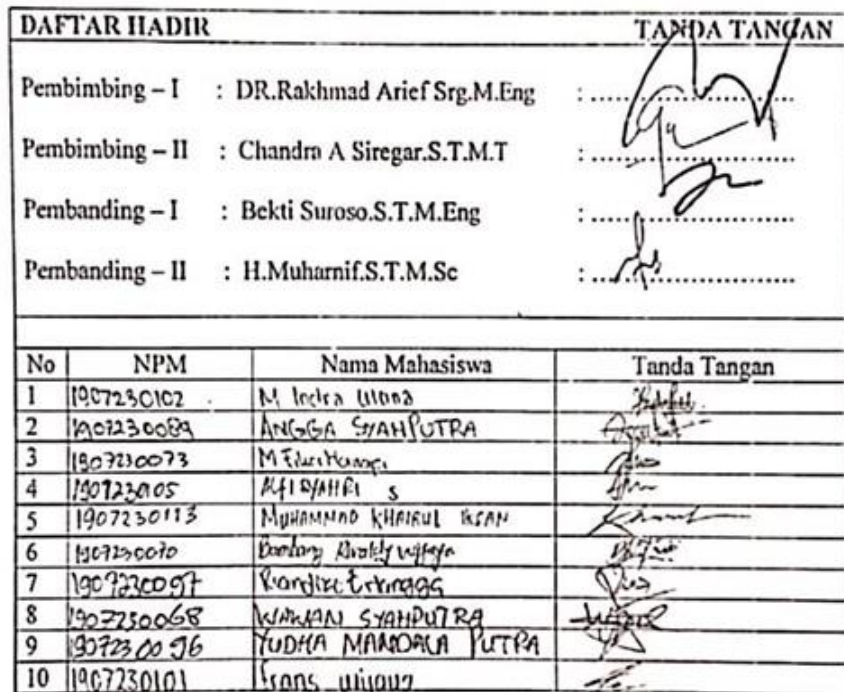 DAFTAR HADIR TANDA TANGAN
Pembimbing – I : DR.Rakhmad Arief Srg.M.Eng : ..............................
Pembimbing – II : Chandra A Siregar.S.T.M.T : ..............................
Pembanding – I : Bekti Suroso.S.T.M.Eng : ..............................
Pembanding – II : H.Muharnif.S.T.M.Sc : ..............................
No NPM Nama Mahasiswa Tanda Tangan
1 1907230102 M Indra
2 1907230089 ANGGA SYAHPUTRA
3 1907230073 M
4 1907230105 S
5 1907230113 MUHAMMAD KHAIRUL IKSAN
6 1907230070 Bambang
7 1907230097
8 1907230068 WAWAN SYAHPUTRA
9 1907230096 YUDHA MANDALA PUTRA
10 1907230101 Frans wijaya